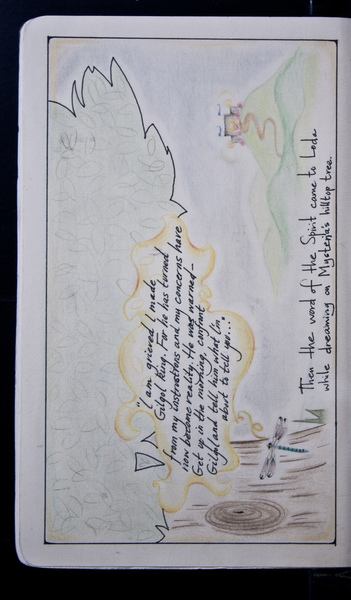 "I am grieved I made
Gilgol King. For he has turned
from my instructions and my concerns have
now become reality. He was warned-
Get up in the morning, confront
Gilgol and tell him what I'm
about to tell you..."
Then the word of the Spirit came to Loda
while dreaming on Mysteja's hilltop tree.